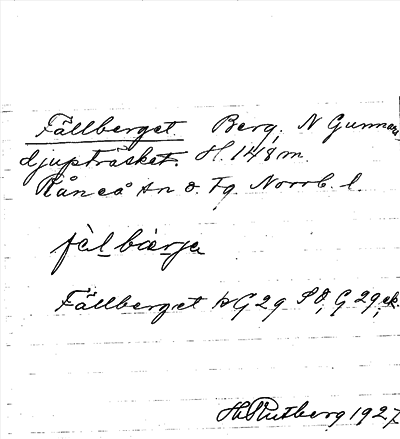 Fällberget. Berg, N Gunnar
djupträsket. H. 148 m.
Råneå sn o. Tg. Norrb. l.
fàl bærje
Fällberget k G 29 SO, G 29, ek.
H. Rutberg 1927